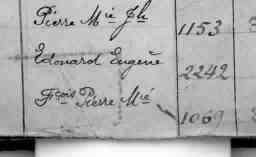 Pierre Mie Jh 1153
Edouard Eugène 2242
Fçois Pierre Mié 1069